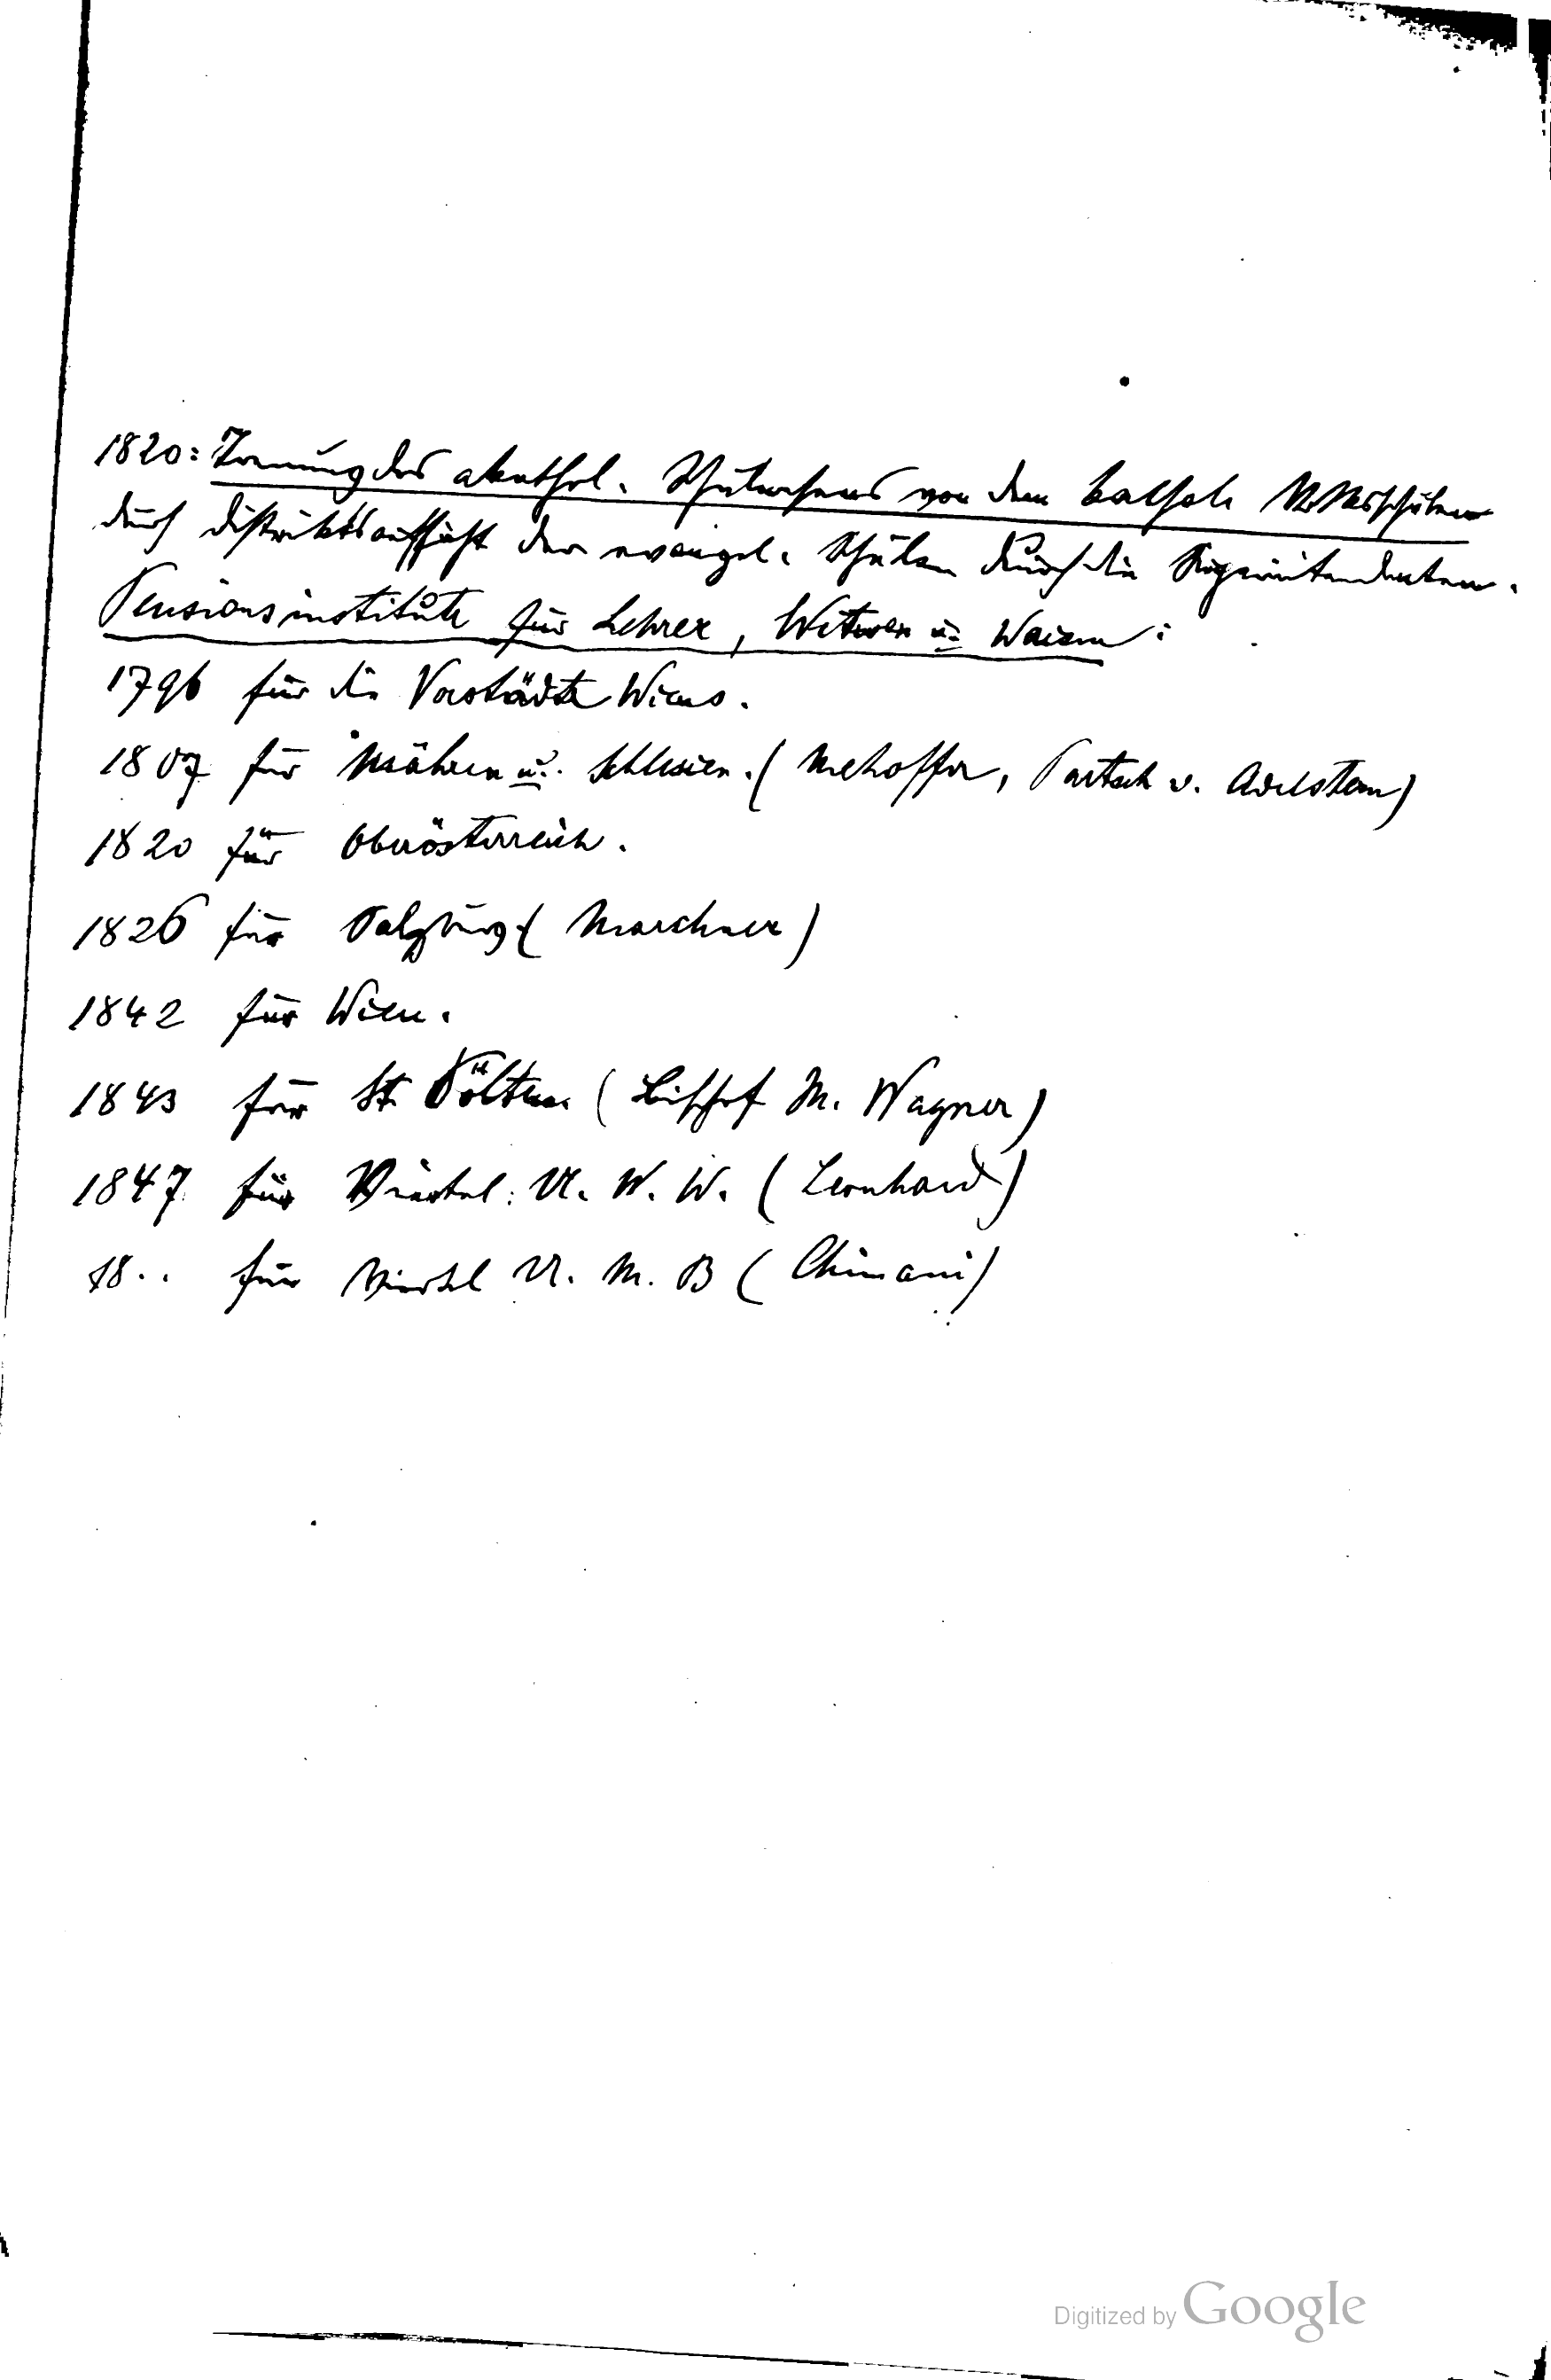 1820: Trennung des akathol. Schulwesens von den kathol. Volksschulen
durch Distriktsaufsicht der evangel. Schulen durch die Superintendenten.
Pensionsinstitute für Lehrer, Witwen u. Waisen:
1796 für die Vorstädte Wiens.
1807 für Mähren u. Schlesien. (Mehoffer, Partsch v. Adelstein)
1820 für Oberösterreich.
1826 für Salzburg (Marchner)
1842 für Wien.
1843 für St. Pölten (Bischof M. Wagner)
1847 für Viertel: U. W. W. (Leonhard)
18.. für Viertel U. M. B (Chimani)
Digitized by Google